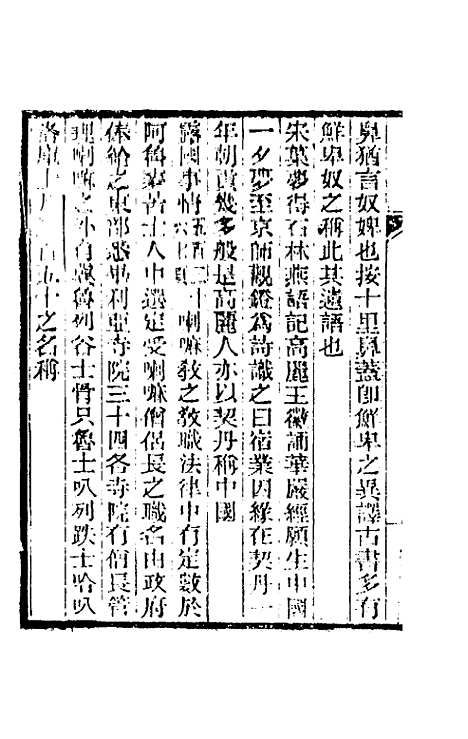 鼻猶言奴婢也按十里鼻蓋即鮮卑之異譯古書多有
鮮卑奴之稱此其遺語也
宋葉夢得石林燕語記高麗王徽誦華嚴經願生中國
一夕夢至京師觀鐙為詩識之曰宿業因緣在契丹一
年朝貢幾多般是高麗人亦以契丹稱中國
露國事情 喇嘛教之教職法律中有定數於
阿魯 士人中選定受喇嘛僧侶長之職名由政府
俸給之東部悉畢利亞寺院三十四各寺院有僧長管
理喇嘛之外有 魯列谷士骨只魯士叭列跌士哈叭
十之名稱